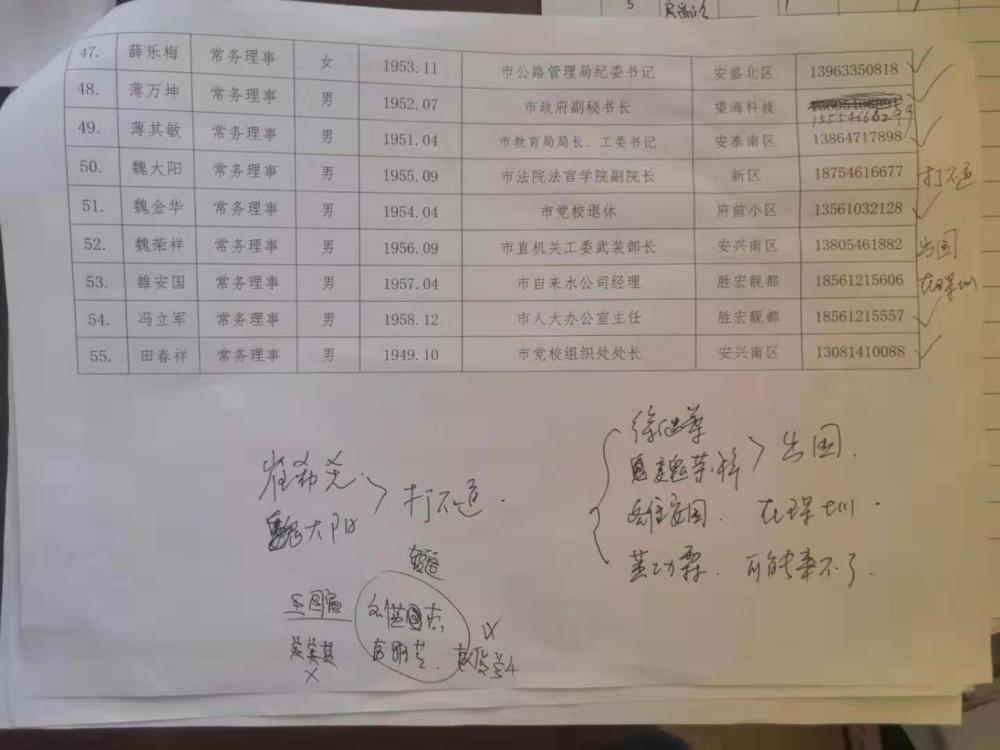 5
47. 薛乐梅 常务理事 女 1953.11 市公路管理局纪委书记 安盛北区 13963350818 ✓
48. 薄万坤 常务理事 男 1952.07 市政府副秘书长 望海科技 15554666299 ✓
49. 薄其敏 常务理事 男 1951.04 市教育局局长、工委书记 安泰南区 13864717898 ✓
50. 魏大阳 常务理事 男 1955.09 市法院法官学院副院长 新区 18754616677 打不通
51. 魏金华 常务理事 男 1954.04 市党校退休 府前小区 13561032128 ✓
52. 魏荣祥 常务理事 男 1956.09 市直机关工委武装部长 安兴南区 13805461882 出国.
53. 雒安国 常务理事 男 1957.04 市自来水公司经理 胜宏靓都 18561215606 在深圳
54. 冯立军 常务理事 男 1958.12 市人大办公室主任 胜宏靓都 18561215557 ✓
55. 田春祥 常务理事 男 1949.10 市党校组织处处长 安兴南区 13081410088 ✓
崔希尧
魏大阳
打不通.
魏荣祥
出国.
雒安国. 在深圳.
可能来不了.